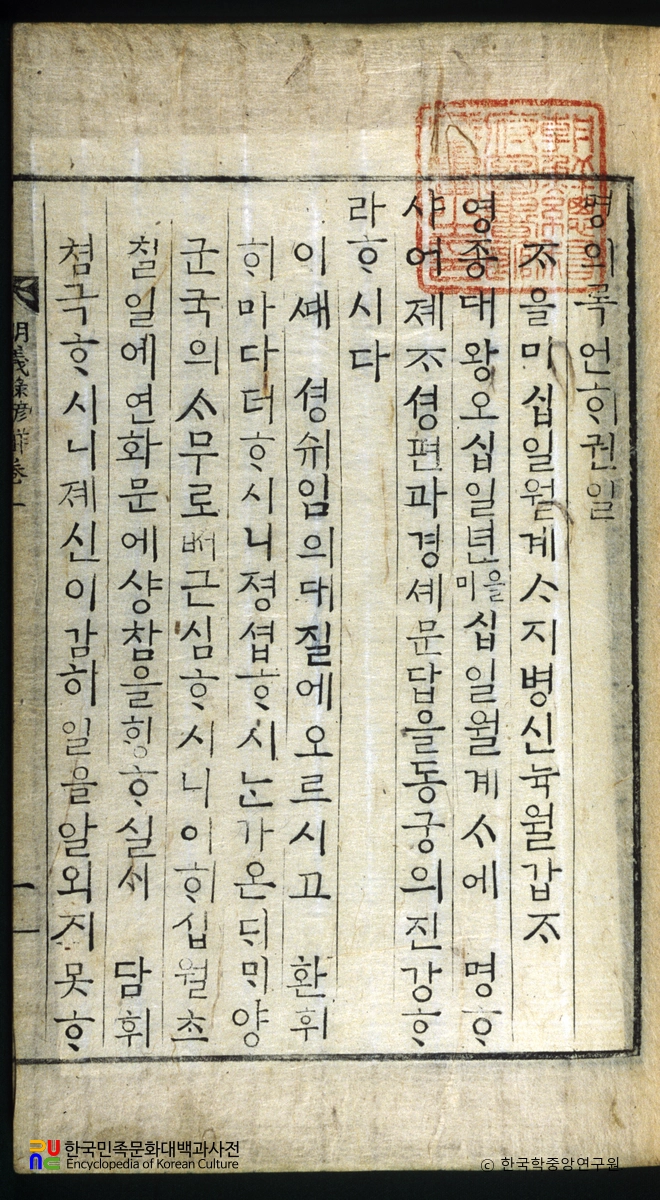 명의록언ᄒᆡ권일
ᄌᆞ을미십일월계ᄉᆞ지병신뉵월갑ᄌᆞ
영종대왕오십일년을미십일월계ᄉᆞ에 명ᄒᆞ
샤어졔ᄌᆞ셩편과경셰문답을동궁의진강ᄒᆞ
라ᄒᆞ시다
이ᄯᅢ 셩쉬임의대질에오르시고 환휘
ᄒᆡ마다더ᄒᆞ시니졍셥ᄒᆞ시ᄂᆞᆫ가온ᄃᆡᄆᆡ양
군국의ᄉᆞ무로ᄡᅥ근심ᄒᆞ시니이ᄒᆡ십월초
칠일에연화문에샹참을ᄒᆡᆼᄒᆞ실ᄉᆡ 담휘
쳠극ᄒᆞ시니졔신이감히일을알외지못ᄒᆞ
明義錄諺解卷一
一
한국민족문화대백과사전
Encyclopedia of Korean Culture
© 한국학중앙연구원